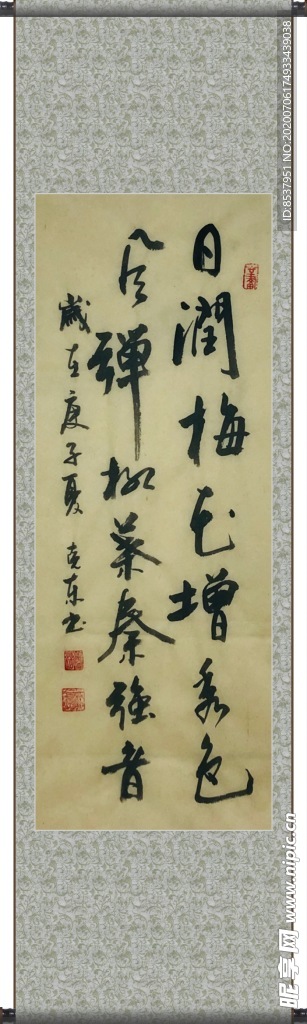 日润梅花增秀色
风弹柳叶奏强音
岁在庚子夏 克东书
ID:8537951 NO:20200706174933439038
昵享网 www.nipic.cn